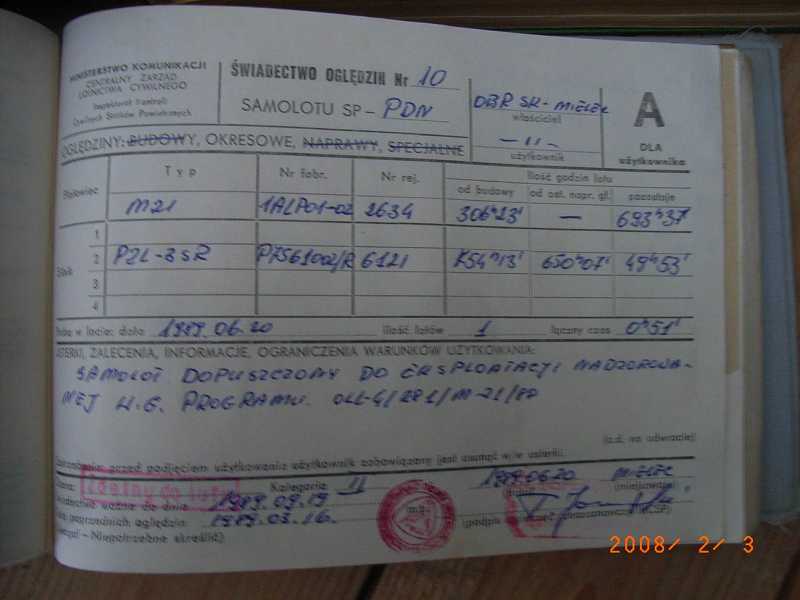 MINISTERSTWO KOMUNIKACJI
CENTRALNY ZARZĄD
LOTNICTWA CYWILNEGO
Inspektorat Kontroli
Cywilnych Statków Powietrznych
ŚWIADECTWO OGLĘDZIN Nr 10
SAMOLOTU SP – PDN
OBR SK- MIELEC
właściciel
– 11 –
użytkownik
A
DLA
użytkownika
OGLĘDZINY: BUDOWY, OKRESOWE, NAPRAWY, SPECJALNE
Płatowiec
Typ
Nr fabr.
Nr rej.
Ilość godzin lotu
od budowy
od ost. napr. gł.
pozostaje
M21 1ALP01-02 2634 306h23' — 693h37'
1
Silnik 2 PZL-3SR 6121 650h07' 49h53'
3
4
Próba w locie: data 1989.06.20 ilość lotów 1 łączny czas 0h51'
USTERKI, ZALECENIA, INFORMACJE, OGRANICZENIA WARUNKÓW UŻYTKOWANIA:
SAMOLOT DOPUSZCZONY DO EKSPLOATACJI NADZOROWA-
NEJ W.G. PROGRAMU
(c.d. na odwrocie)
przed podjęciem użytkowania użytkownik zobowiązany jest usunąć w/w usterki.
Zdatny do lotu
Kategoria II 1989.06.20 MIELEC
(miejscowość)
świadectwo ważne do dnia 1989.09.19
poprzednich oględzin 1989.03.16.
m.p.
(podpis
– Niepotrzebne skreślić)
2008/ 2/ 3